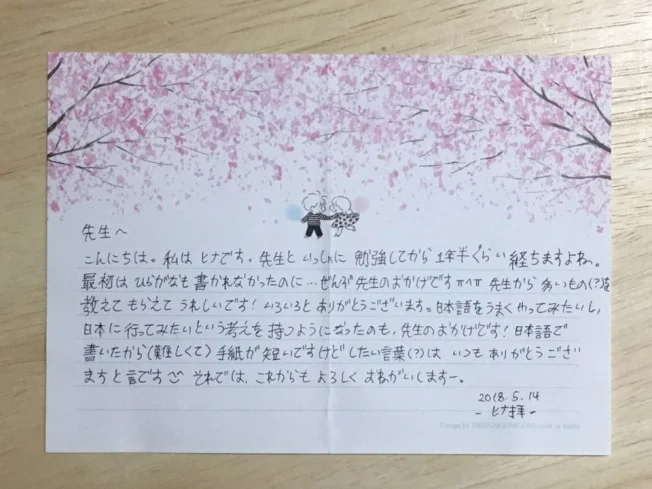 先生へ
こんにちは。私は ヒナです。先生と いっしょに 勉強してから 1年半ぐらい 経ちますよね。
最初は ひらがなも 書かれなかったのに… ぜんぶ 先生の おかげです ㅠㅅㅠ 先生から 多いもの(?)を
教えて もらえて うれしいです! いろいろと ありがとうございます。日本語を うまく やってみたいし,
日本に 行ってみたいという 考えを 持つように なったのも, 先生の おかげです! 日本語で
書いたから (難しくて) 手紙が 短いですけど したい 言葉(?)は いつも ありがとう ござい
ますと 言です ^^ それでは, これからも よろしく おねがいしますー。
2018. 5. 14
- ヒナ拝 -
Design by